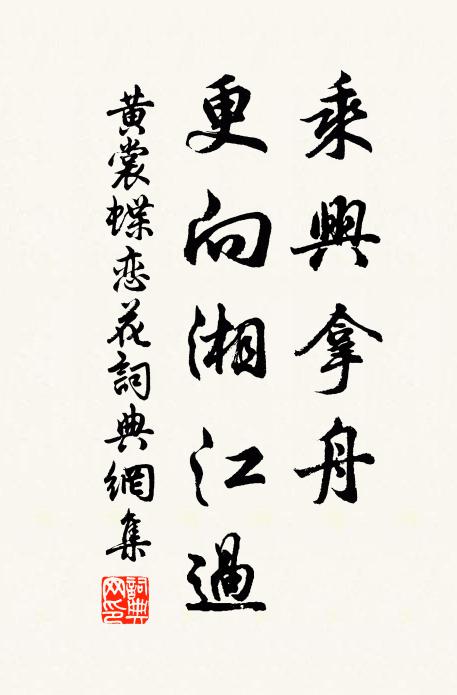 乘興拿舟
更向湘江過
黃裳蝶恋花詞典網集
詞典網印